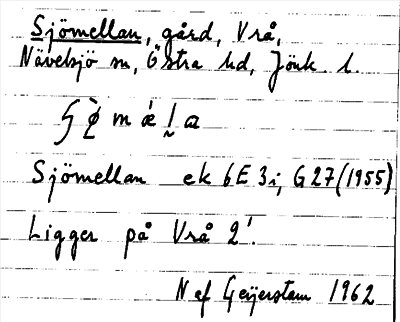 Sjömellan, gård, Vrå,
Nävelsjö sn, Östra hd, Jönk l.
Sjömellan ek 6E 3i, G27 (1955)
Ligger på Vrå 2¹.
N af Geijerstam 1962